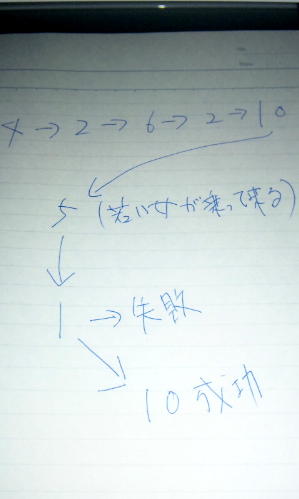 4→2→6→2→10
5 (若い女が乗って来る)
1→失敗
10成功